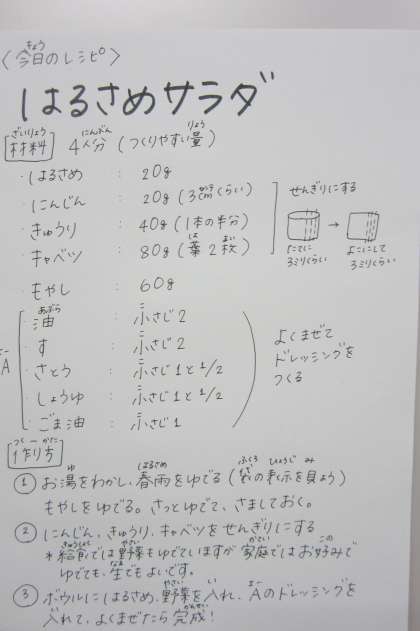 〈今日のレシピ〉
はるさめサラダ
材料 4人分 (つくりやすい量)
・はるさめ : 20g
・にんじん : 20g (3cmくらい)
・きゅうり : 40g (1本の半分)
・キャベツ : 80g (葉2枚)
・もやし : 60g
せんぎりにする
たてに
3ミリくらい
→
よこにして
3ミリくらい
A
・油 : 小さじ2
・す : 小さじ2
・さとう : 小さじ1と1/2
・しょうゆ : 小さじ1と1/2
・ごま油 : 小さじ1
よくまぜて
ドレッシングを
つくる
作り方
① お湯をわかし、春雨をゆでる (袋の表示を見よう)
もやしをゆでる。さっとゆでて、さましておく。
② にんじん、きゅうり、キャベツをせんぎりにする
*給食では野菜もゆでていますが 家庭ではお好みで
ゆでても、生でもよいです。
③ ボウルにはるさめ、野菜を入れ、Aのドレッシングを
入れて、よくまぜたら 完成!